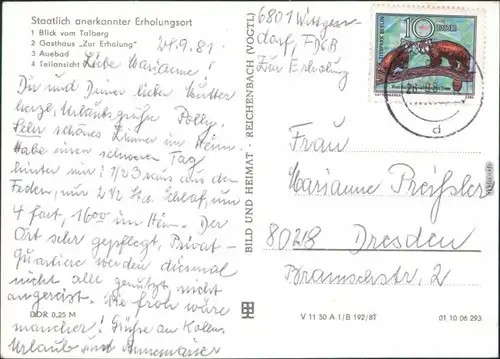 Staatlich anerkannter Erholungsort
1 Blick vom Talberg
2 Gasthaus „Zur Erholung"
3 Auebad
4 Teilansicht
24.9.81
Liebe Marianne!
Dir und Deiner lieben Mutter
herzl. Urlaubsgrüße Polly.
Sehr schönes Zimmer im Heim.
Habe einen schweren Tag
hinter mir! 1/23 raus aus den
Federn, nur 2 1/2 Std. Schlaf, um
4 fort, 1600 im Heim. Der
Ort sehr gepflegt, Privat-
Quartiere werden diesmal
nicht alle genutzt, nicht
angereist. Wie froh wäre
mancher! Grüße an Kollens
Urlaub und
DDR 0,25 M
BILD UND HEIMAT REICHENBACH (VOGTL)
6801 Wittgen-
dorf, FDGB
Zur Erholung
10 DDR
TIERPARK BERLIN
d
Frau
Marianne Preißler
8021B Dresden
Bramschstr. 2
V 11 50 A 1/B 192/81 01 10 06 293